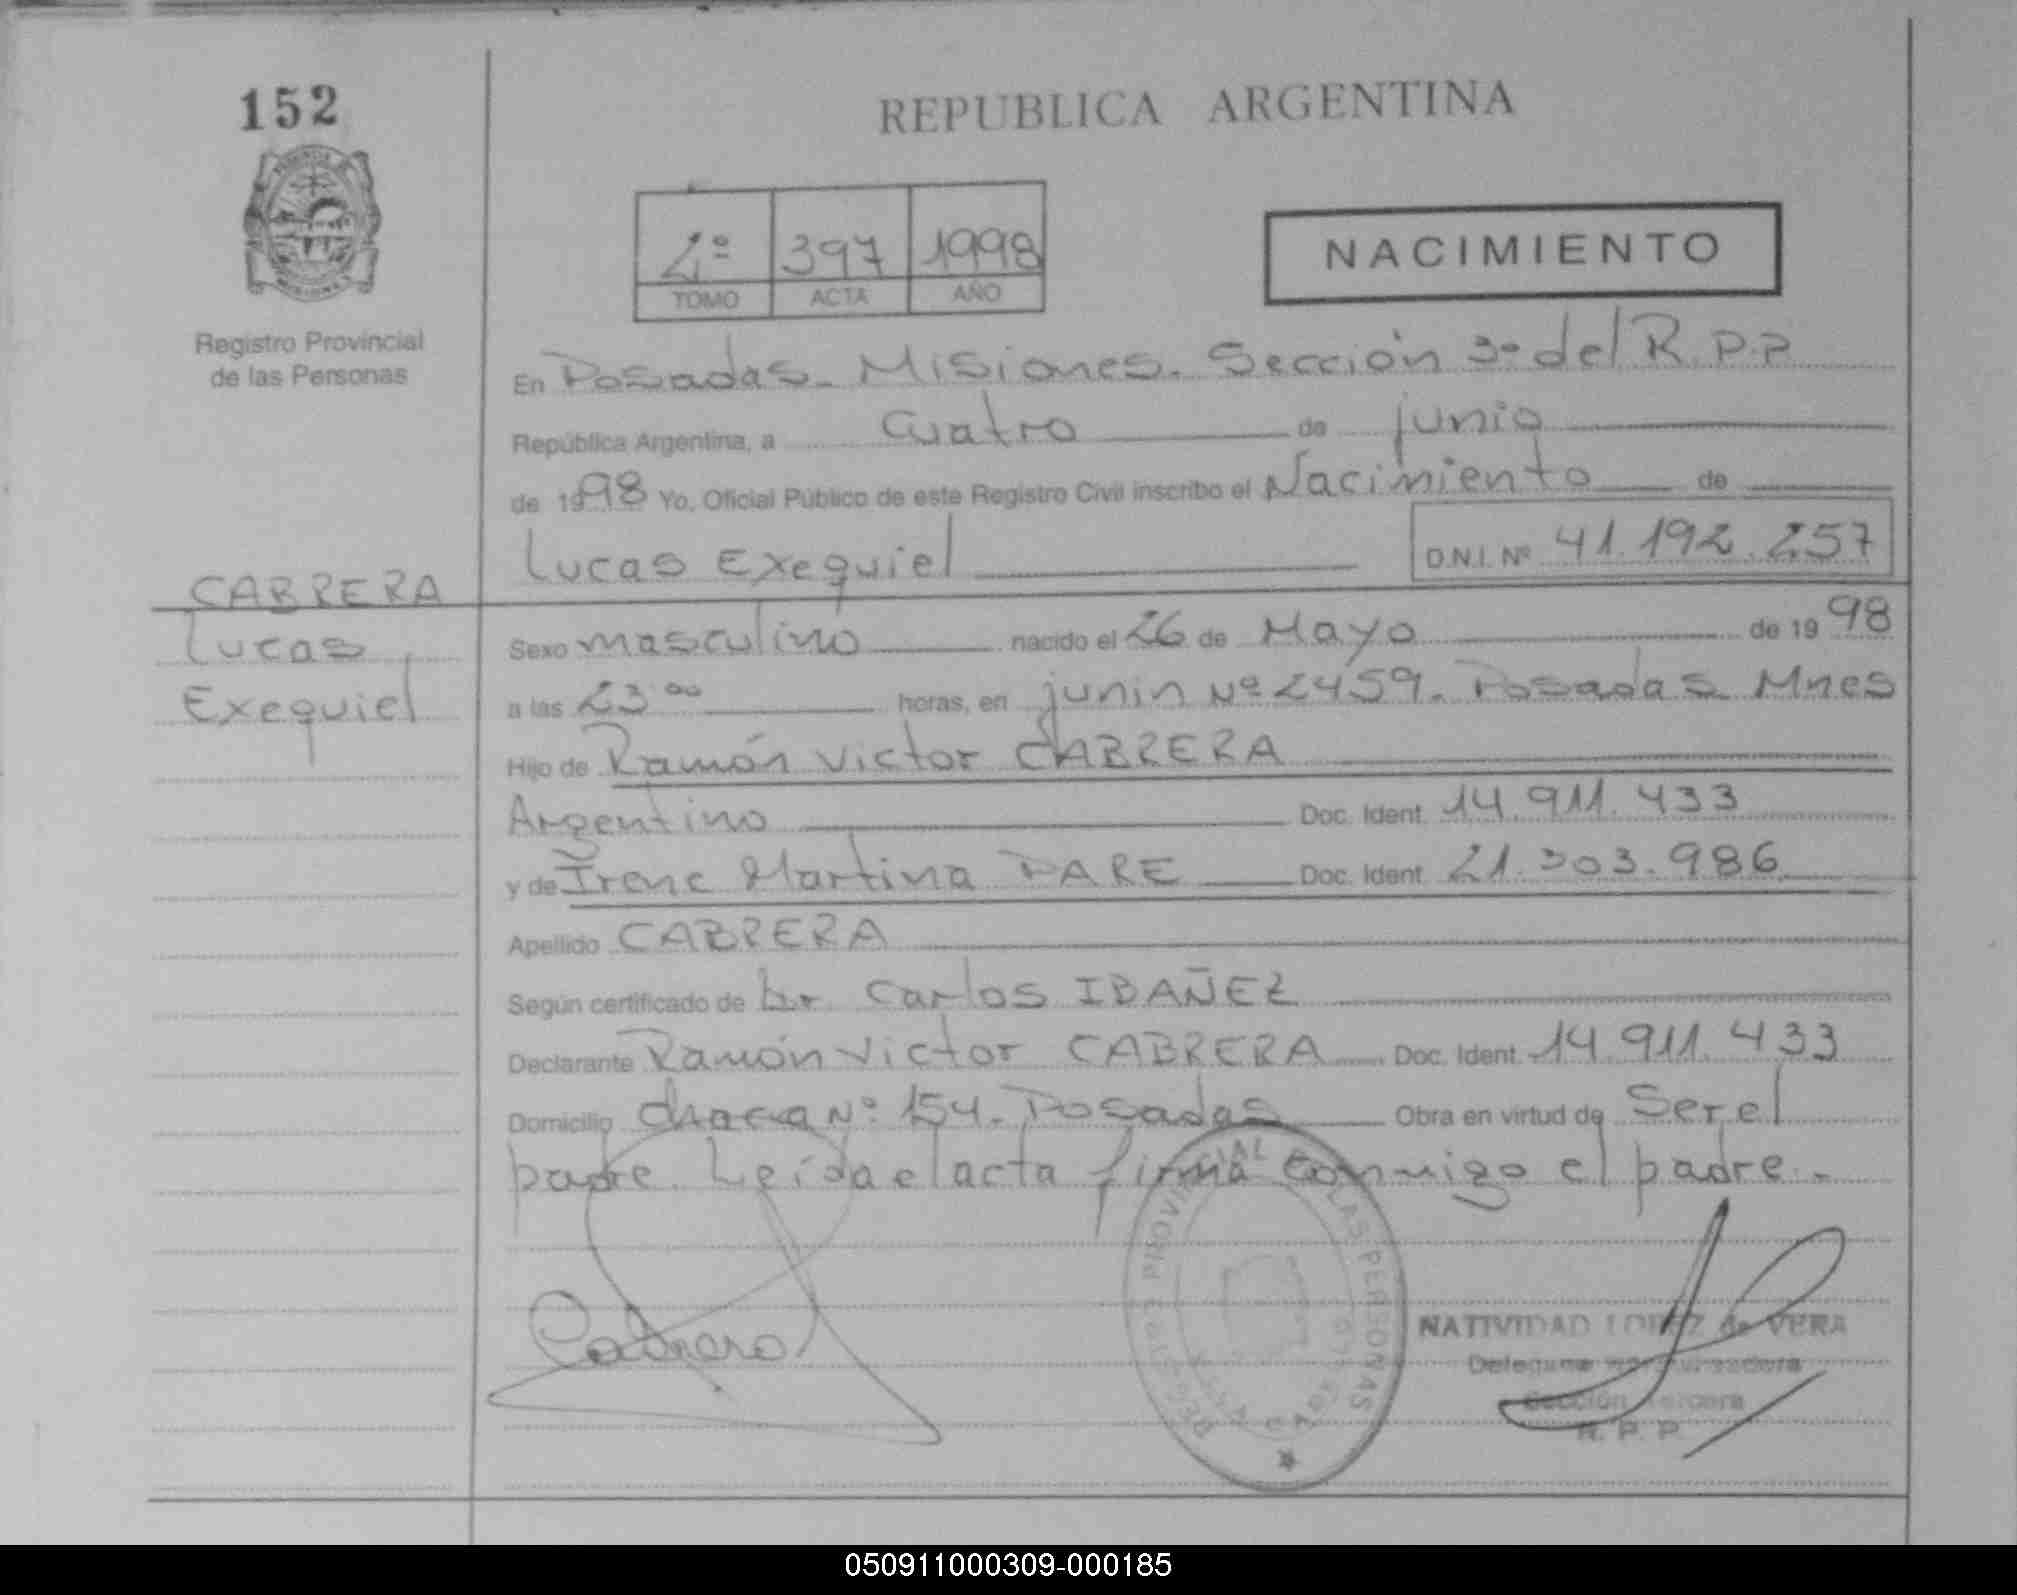 152
REPUBLICA ARGENTINA
2º 397 1998
TOMO ACTA AÑO
NACIMIENTO
Registro Provincial
de las Personas
En Posadas. Misiones. Sección 3º del R.P.P
República Argentina, a cuatro de junio
de 1998 Yo, Oficial Público de este Registro Civil inscribo el Nacimiento de
Lucas Exequiel D.N.I. Nº 41.192.257
CABRERA
Lucas
Exequiel
Sexo masculino nacido el 26 de Mayo de 1998
a las 23 ºº horas, en junin Nº 2459. Posadas. Mnes
Hijo de Ramón Victor CABRERA
Argentino Doc. Ident. 14.911.433
y de Irene Martina PARE Doc. Ident. 21.303.986
Apellido CABRERA
Según certificado de Dr. Carlos IBAÑEZ
Declarante Ramón Victor CABRERA Doc. Ident. 14.911.433
Domicilio chacra Nº 154. Posadas Obra en virtud de Ser el
padre. Leída el acta firma conmigo el padre.-
Cabrera
NATIVIDAD LOPEZ de VERA
Sección Tercera
R. P. P.
050911000309-000185